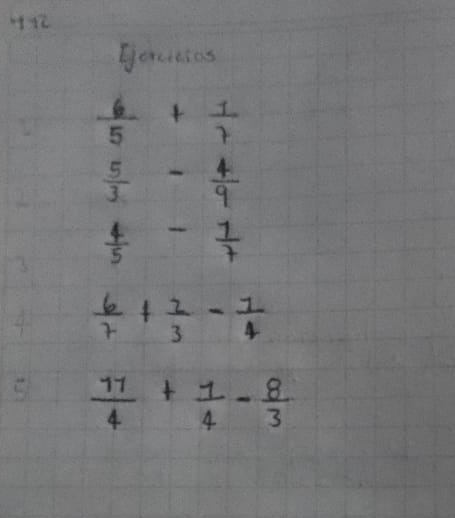 412
Ejercicios
1 6/5 + 1/7
2 5/3 - 4/9
3 4/5 - 1/7
4 6/7 + 2/3 - 1/4
5 11/4 + 1/4 - 8/3